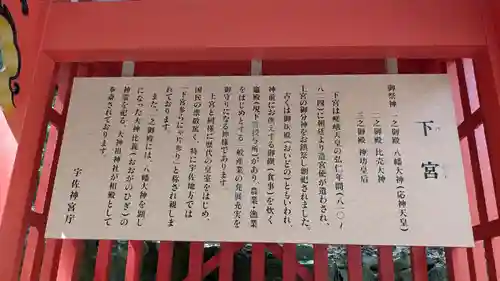 下宮
げぐう
御祭神
一之御殿 八幡大神(応神天皇)
二之御殿 比売大神
三之御殿 神功皇后
下宮は嵯峨天皇の弘仁年間(八一〇~
八二四)に朝廷より造宮使が遣わされ、
上宮の御分神をお鎮祭し創祀されました。
古くは御炊殿(おいどの)ともいわれ、
神前にお供えする御餐(食事)を炊く
竈殿(現下宮授与所)があり、農業・漁業
をはじめとする一般産業の発展充実を
御守りになる神様であります。
上宮と同様に歴代の皇室をはじめ、
国民の崇敬篤く、特に宇佐地方では
「下宮参らにゃ片参り」と称され親しま
れております。
また、一之御殿には、八幡大神を顕し
になった大神比義(おおがのひぎ)の
神霊を祀る、大神祖神社が相殿として
奉斎されております。
宇佐神宮庁